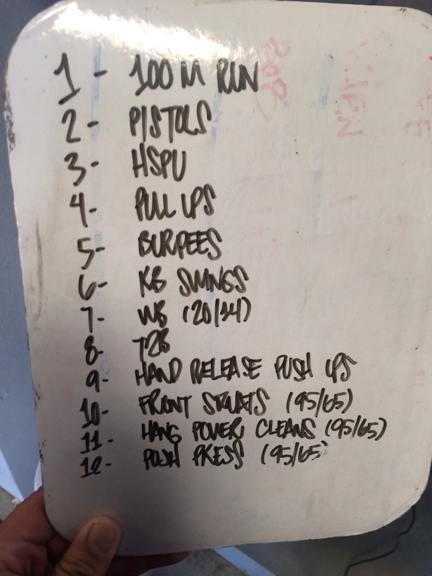 1 - 100 M RUN
2 - PISTOLS
3 - HSPU
4 - PULL UPS
5 - BURPEES
6 - KB SWINGS
7 - WB (20/14)
8 - T2B
9 - HAND RELEASE PUSH UPS
10 - FRONT SQUATS (95/65)
11 - HANG POWER CLEANS (95/65)
12 - PUSH PRESS (95/65)